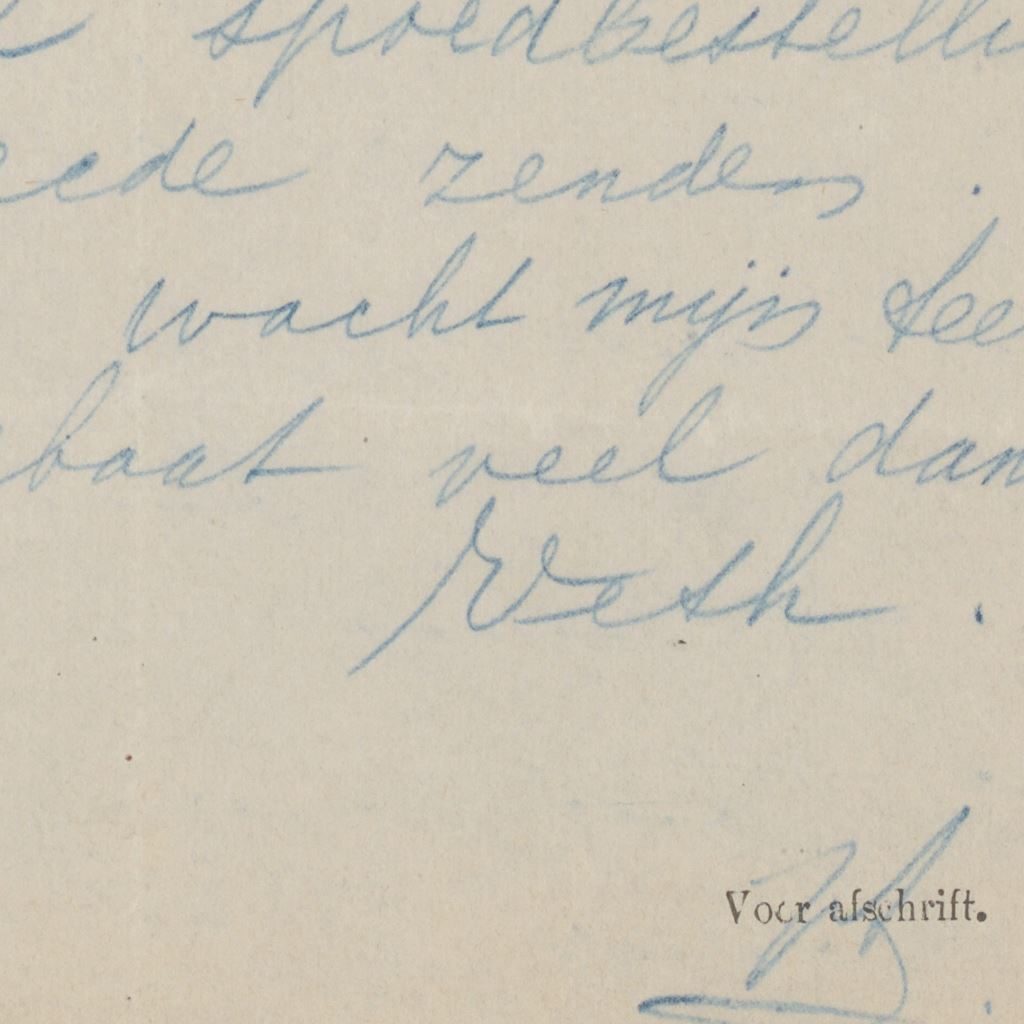 spoedbestelli
ecde zenden .
wacht mijn tee
baat veel dan
Veth .
Voor afschrift.